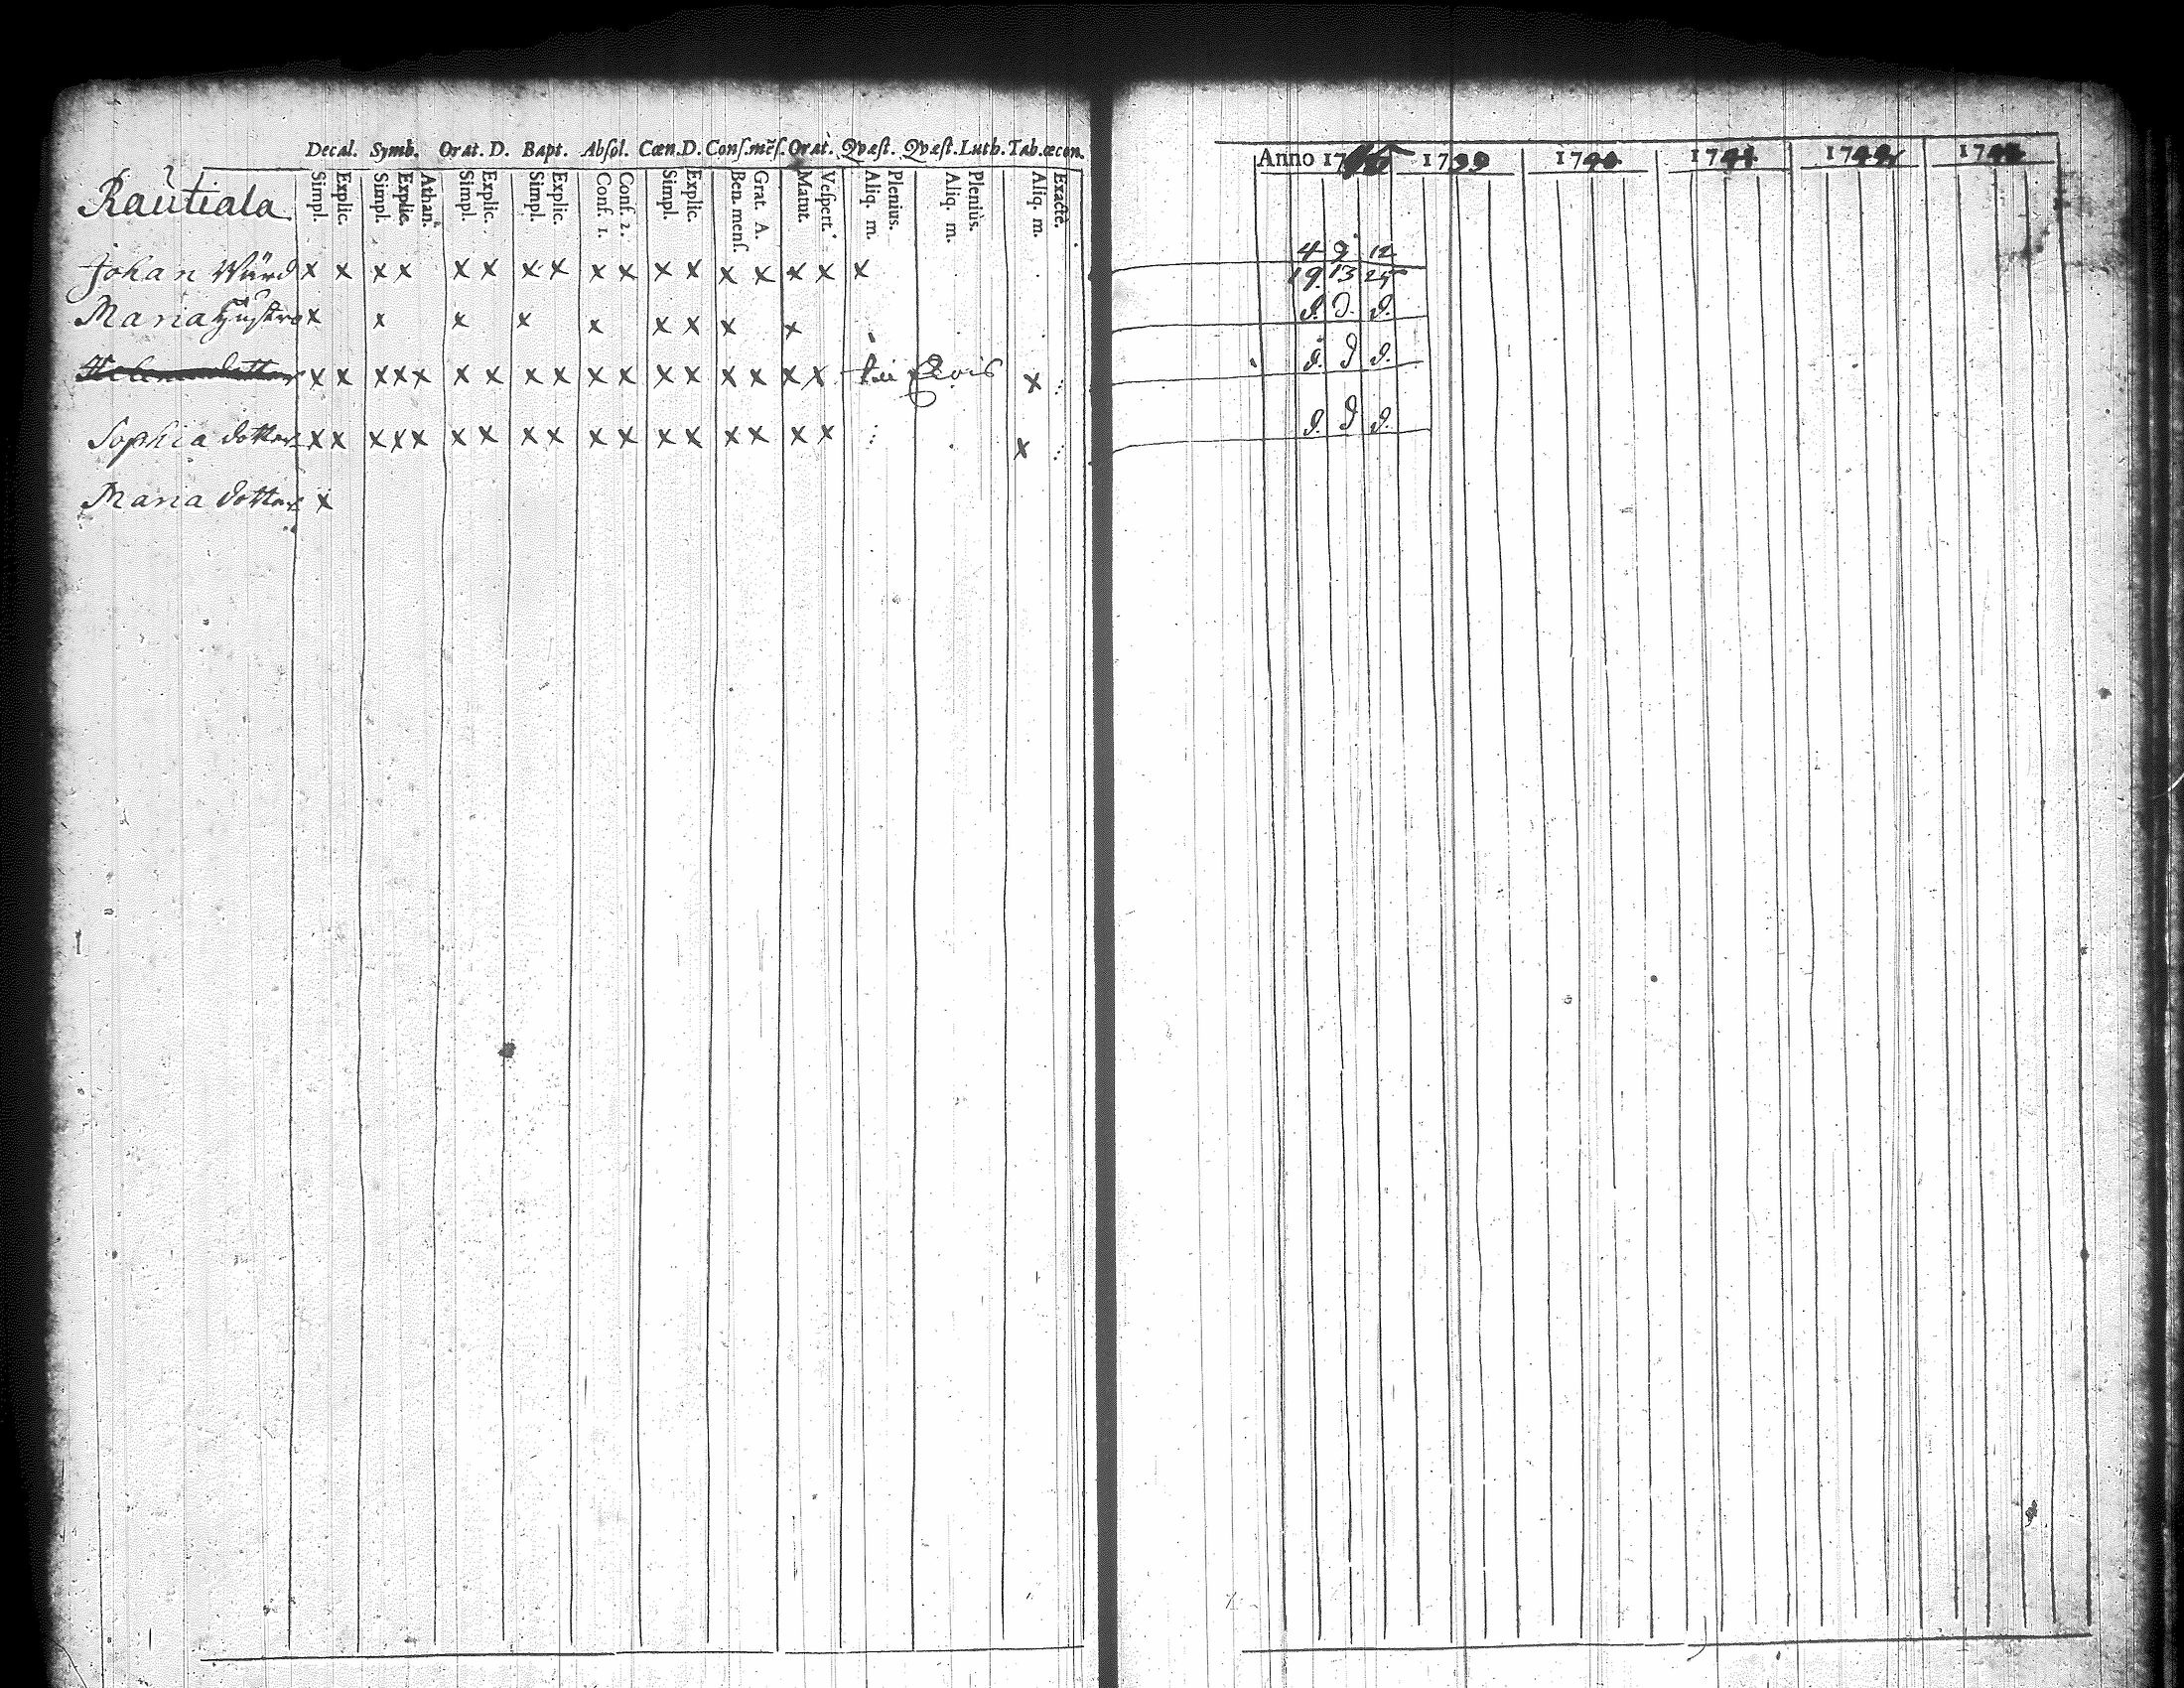 Decal. Symb. Orat. D. Bapt. Absol. Cœn. D. Conf. mẽs. Orat. Qvæst. Qvæst. Luth. Tab. œcon.
Simpl. Explic. Simpl. Explic. Athan. Simpl. Explic. Simpl. Explic. Conf. 1. Conf. 2. Simpl. Explic. Ben. mens. Grat. A. Matut. Vespert. Aliq. m. Plenius. Aliq. m. Pleniùs. Aliq. m. Exactè.
Rautiala
Johan x x x x x x x x x x x x x x x x x
Maria Hustro x x x x x x x x x
Helena dotter x x x x x x x x x x x x x x x x x x
Sophia dotter x x x x x x x x x x x x x x x x x x
Maria dotter x
Anno 17 1739 1740 1741 17 17
4 9 12
19 13 25
d. d. d.
d. d d.
d. d d.